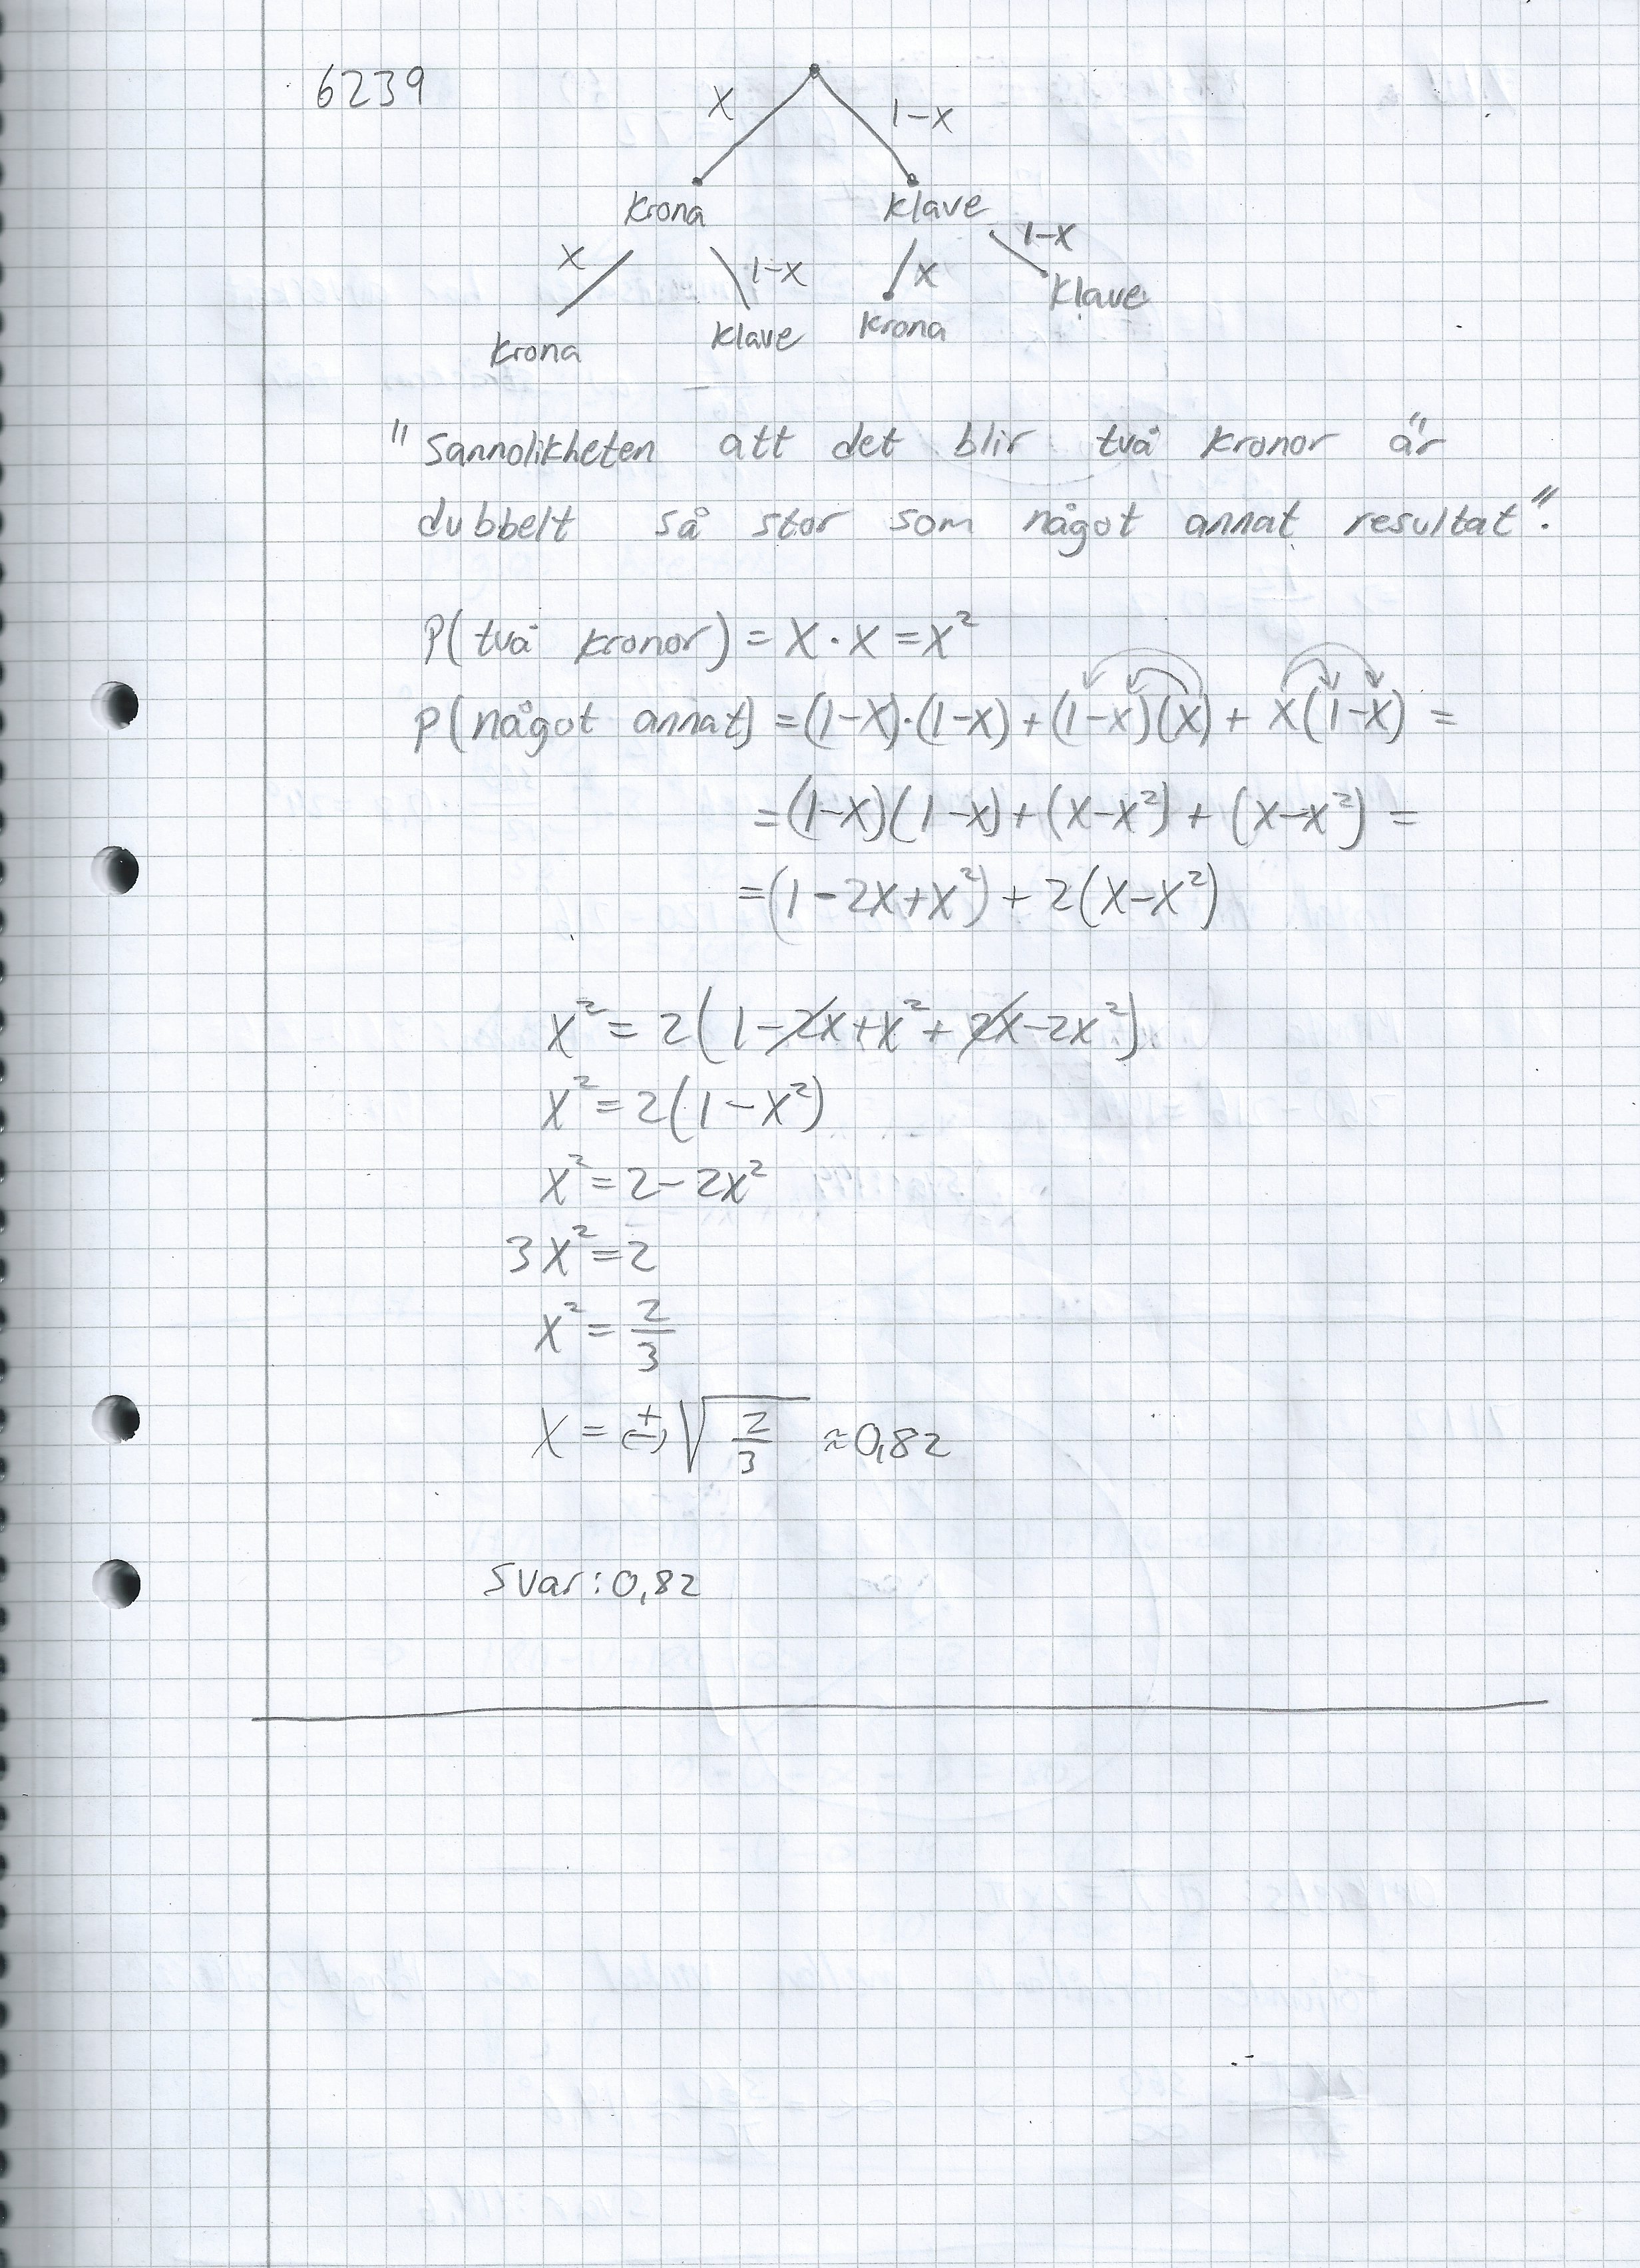 6239
x 1-x
Krona Klave
x 1-x x 1-x
Krona Klave Krona Klave
"Sannolikheten att det blir två kronor är
dubbelt så stor som något annat resultat".
P(två kronor) = x · x = x²
P(något annat) = (1-x)·(1-x) + (1-x)(x) + x(1-x) =
= (1-x)(1-x) + (x-x²) + (x-x²) =
= (1-2x+x²) + 2(x-x²)
x² = 2(1-2x+x²+2x-2x²)
x² = 2(1-x²)
x² = 2-2x²
3x² = 2
x² = 2/3
x = ±√(2/3) ≈ 0,82
Svar: 0,82